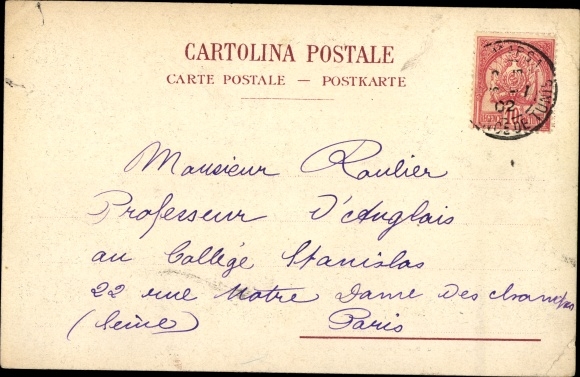 CARTOLINA POSTALE
CARTE POSTALE — POSTKARTE
02
DE TUNIS
Monsieur Roulier
Professeur D'Anglais
au Collège Stanislas
22 rue Notre Dame Des champs
(Seine) Paris